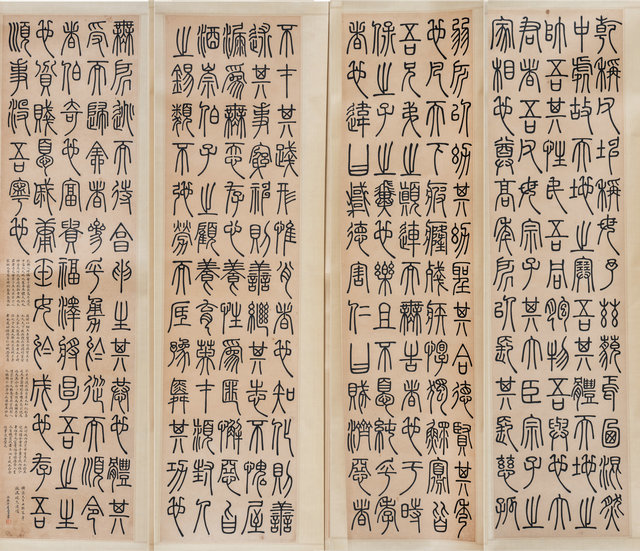 乾稱父坤稱母予茲藐焉乃混然
中處故天地之塞吾其體天地之
帥吾其性民吾同胞物吾與也大
君者吾父母宗子其大臣宗子之
家相也尊高年所以長其長慈孤
弱所以幼其幼聖其合德賢其秀
也凡天下疲癃殘疾惸獨鰥寡皆
吾兄弟之顛連而無告者也于時
保之子之翼也樂且不憂純乎孝
者也違曰悖德害仁曰賊濟惡者
不才其踐形惟肖者也知化則善
述其事窮神則善繼其志不愧屋
漏為無忝存心養性為匪懈惡旨
酒崇伯子之顧養育英才潁封人
之錫類不弛勞而厎豫舜其功也
無所逃而待烹申生其恭也體其
受而歸全者參乎勇於從而順令
者伯奇也富貴福澤將厚吾之生
也貧賤憂戚庸玉女於成也存吾
順事沒吾寧也